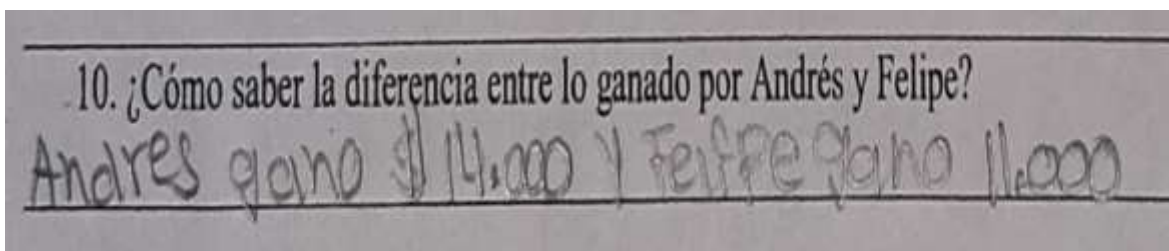 10. ¿Cómo saber la diferencia entre lo ganado por Andrés y Felipe?
Andres gano $ 14.000 y Felipe gano 11.000